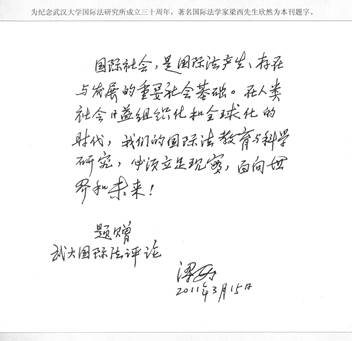 为纪念武汉大学国际法研究所成立三十周年，著名国际法学家梁西先生欣然为本刊题字。
国际社会，是国际法产生、存在
与发展的重要社会基础。在人类
社会日益组织化和全球化的
时代，我们的国际法教育与科学
研究，必须立足现实，面向世
界和未来！
题赠
武大国际法评论
梁西
2011年3月15日